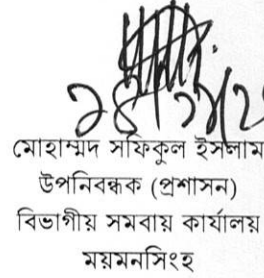 মোহাম্মদ সফিকুল ইসলাম
উপনিবন্ধক (প্রশাসন)
বিভাগীয় সমবায় কার্যালয়
ময়মনসিংহ